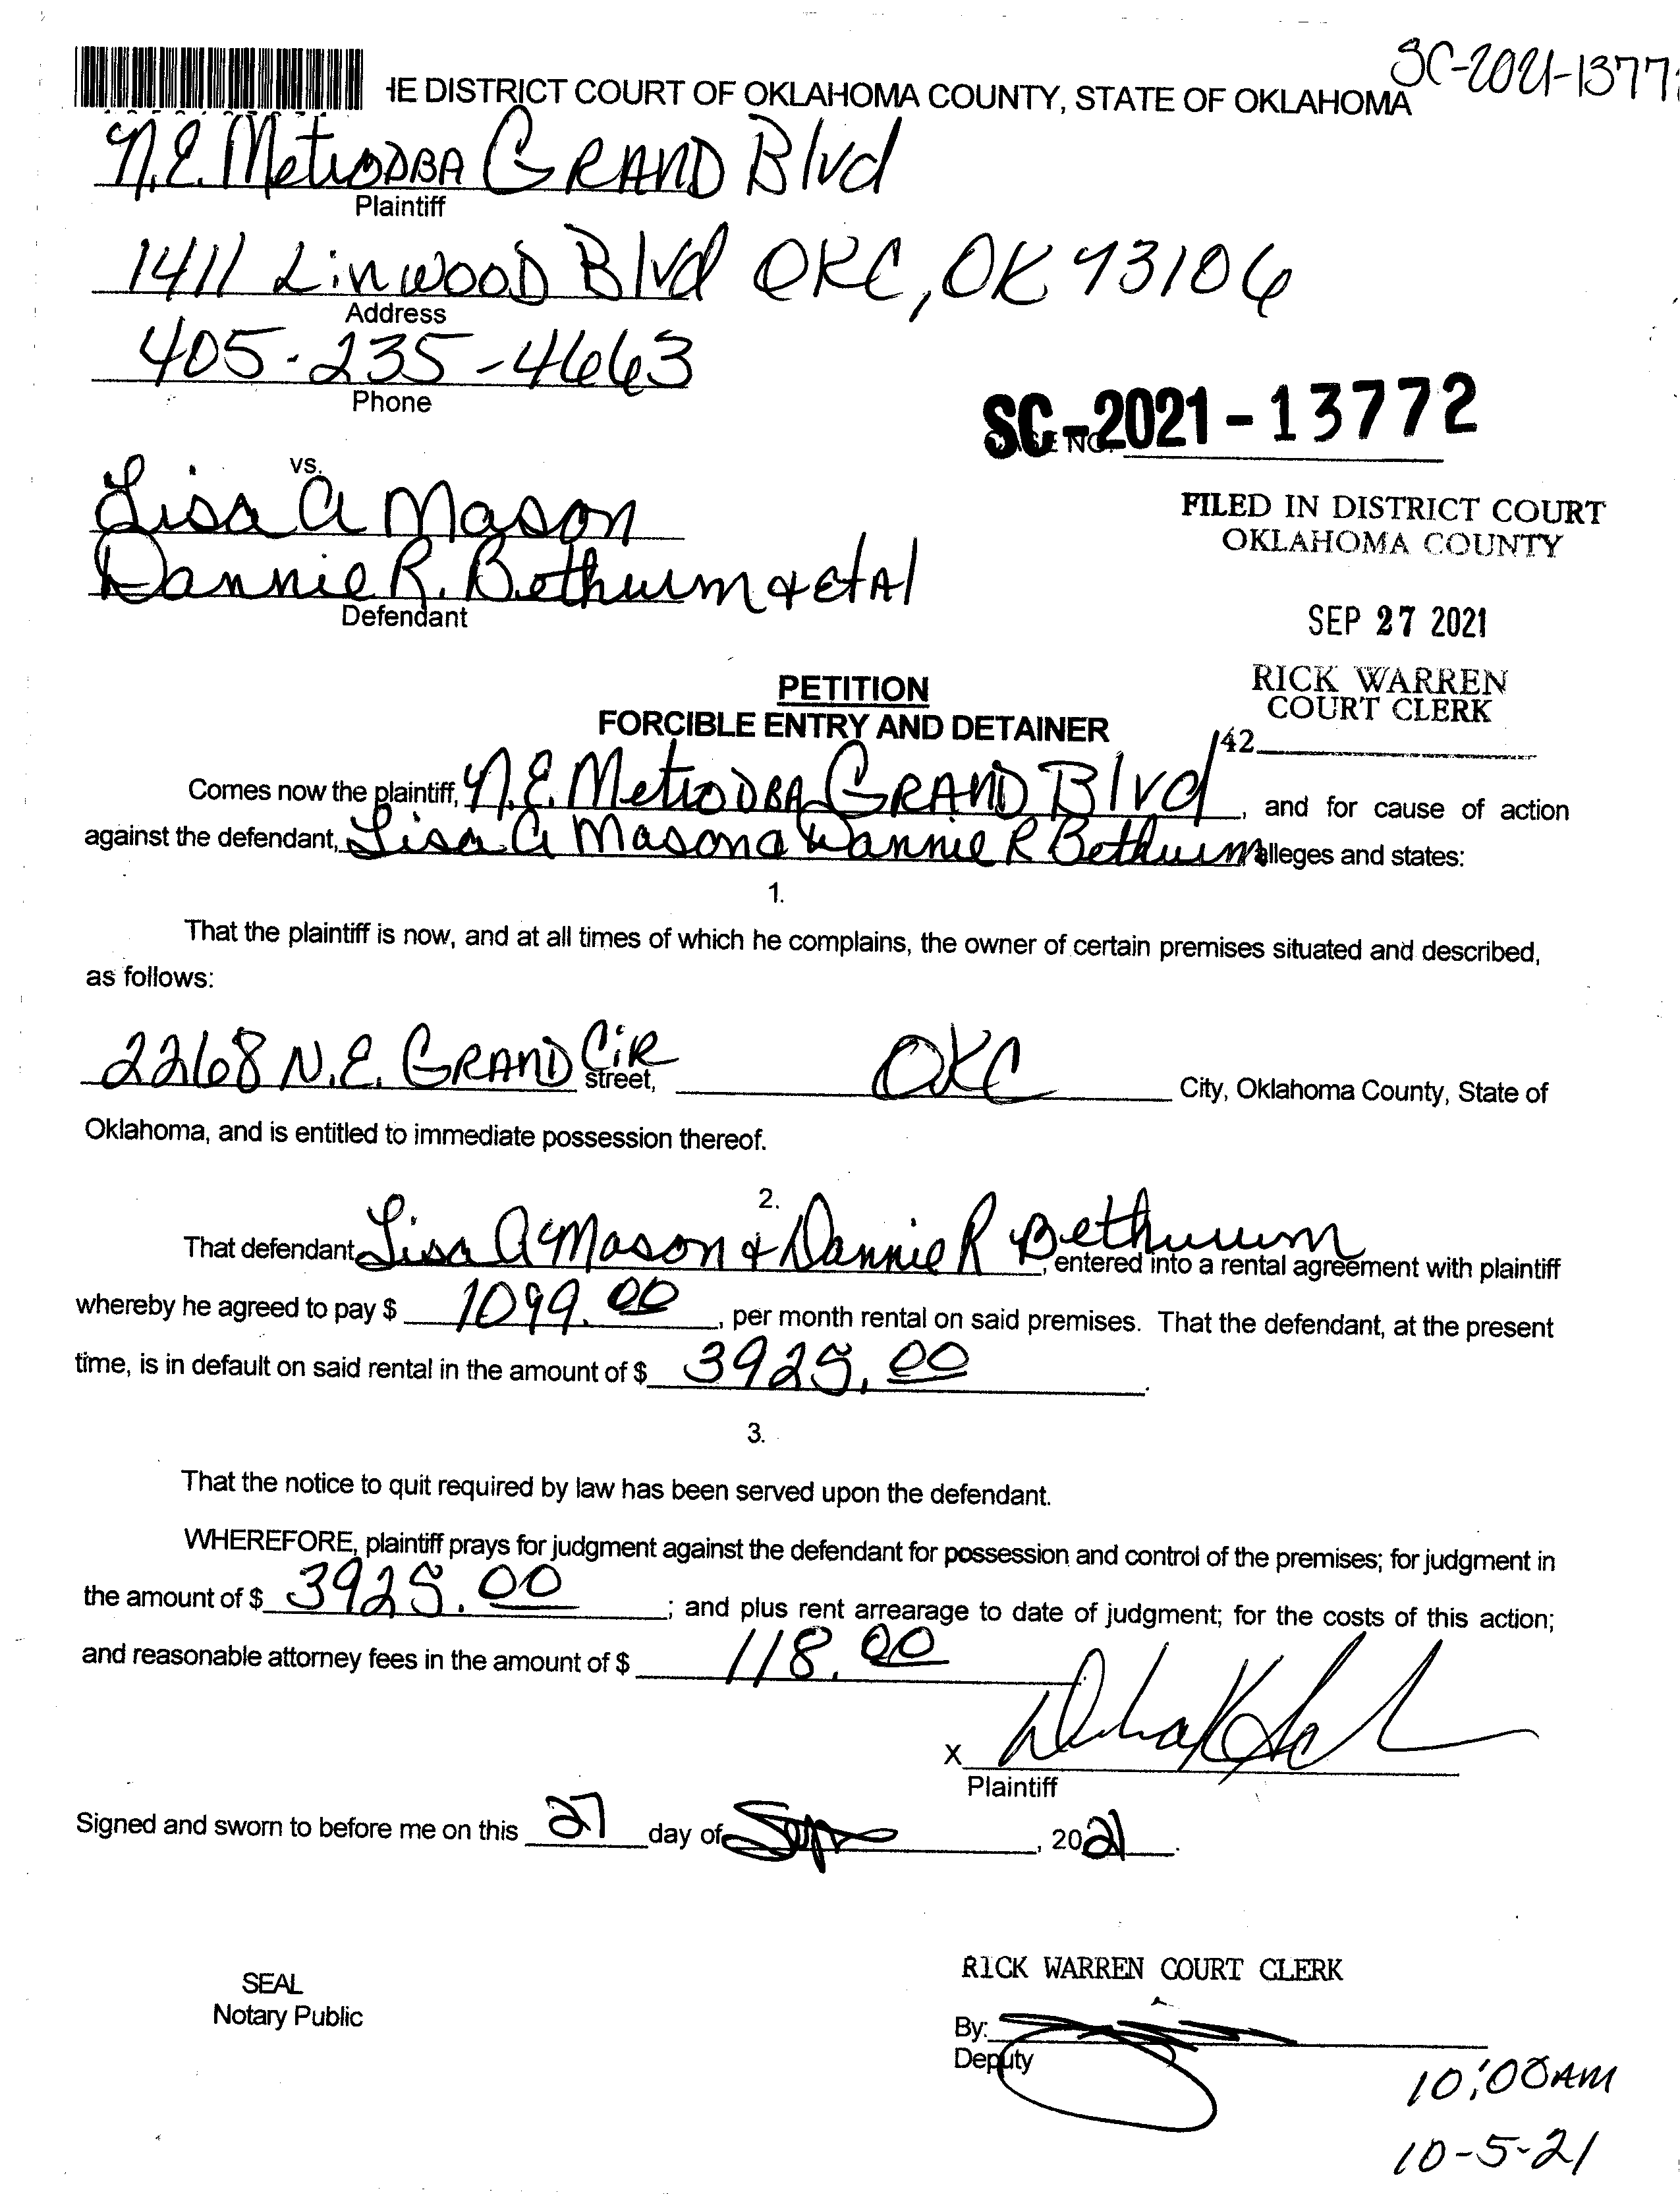 SC-2021-1377
HE DISTRICT COURT OF OKLAHOMA COUNTY, STATE OF OKLAHOMA
N.E. Metro DBA GRAND Blvd
Plaintiff
1411 LinwooD Blvd OKC, OK 73106
Address
405-235-4663
Phone
SC-2021-13772
CASE NO.
vs.
Lisa A Mason
Dannie R. Bethurum & EtAl
Defendant
FILED IN DISTRICT COURT
OKLAHOMA COUNTY
SEP 27 2021
RICK WARREN
COURT CLERK
42
PETITION
FORCIBLE ENTRY AND DETAINER
Comes now the plaintiff, N.E. Metro DBA GRAND Blvd, and for cause of action
against the defendant, Lisa A Mason & Dannie R Bethurum alleges and states:
1.
That the plaintiff is now, and at all times of which he complains, the owner of certain premises situated and described,
as follows:
2268 N.E. GRAND CiR street, OKC City, Oklahoma County, State of
Oklahoma, and is entitled to immediate possession thereof.
2.
That defendant Lisa A Mason & Dannie R Bethurum, entered into a rental agreement with plaintiff
whereby he agreed to pay $ 1099.00, per month rental on said premises. That the defendant, at the present
time, is in default on said rental in the amount of $ 3925.00.
3.
That the notice to quit required by law has been served upon the defendant.
WHEREFORE, plaintiff prays for judgment against the defendant for possession and control of the premises; for judgment in
the amount of $ 3925.00; and plus rent arrearage to date of judgment; for the costs of this action;
and reasonable attorney fees in the amount of $ 118.00
X
Plaintiff
Signed and sworn to before me on this 27 day of Sept, 2021.
SEAL
Notary Public
RICK WARREN COURT CLERK
By:
Deputy
10:00AM
10-5-21